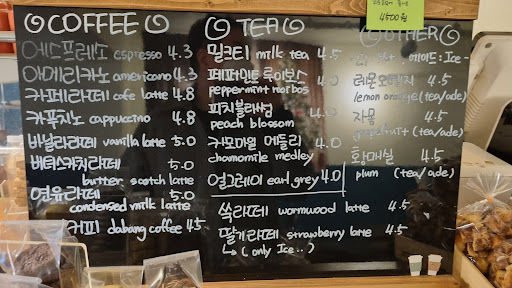 COFFEE
에스프레소 espresso 4.3
아메리카노 americano 4.3
카페라떼 cafe latte 4.8
카푸치노 cappuccino 4.8
바닐라라떼 vanilla latte 5.0
버터스카치라떼 5.0
butter scotch latte
연유라떼 5.0
condensed milk latte
커피 dabang coffee 4.5
TEA
밀크티 milk tea 4.5
페퍼민트 루이보스
peppermint roibos 4.0
피치블라썸 4.0
peach blossom
카모마일 메들리 4.0
chamomile medley
얼그레이 earl grey 4.0
쑥라떼 wormwood latte 4.5
딸기라떼 strawberry latte 4.5
↳ (only Ice..)
4500원
OTHER
에이드: Ice-
레몬오렌지 4.5
lemon orange (tea/ade)
자몽 4.5
grapefruit (tea/ade)
황매실 4.5
plum (tea/ade)